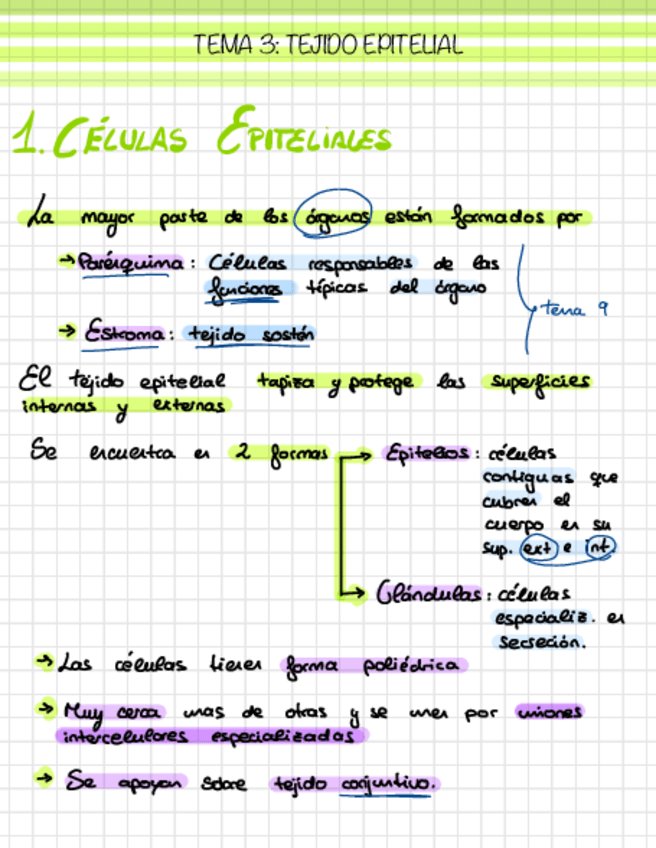 TEMA 3: TEJIDO EPITELIAL
1. CÉLULAS EPITELIALES
La mayor parte de los órganos están formados por
→ Parérquima: Células responsables de las
funciones típicas del órgano
→ Estroma: tejido sostén
tema 9
El tejido epitelial tapiza y protege las superficies
internas y externas
Se encuentra en 2 formas → Epitelios: células
contiguas que
cubren el
cuerpo en su
sup. ext e int.
→ Glándulas: células
especializ. en
secreción.
→ Las células tienen forma poliédrica
→ Muy cerca unas de otras y se unen por uniones
intercelulares especializadas
→ Se apoyan sobre tejido conjuntivo.